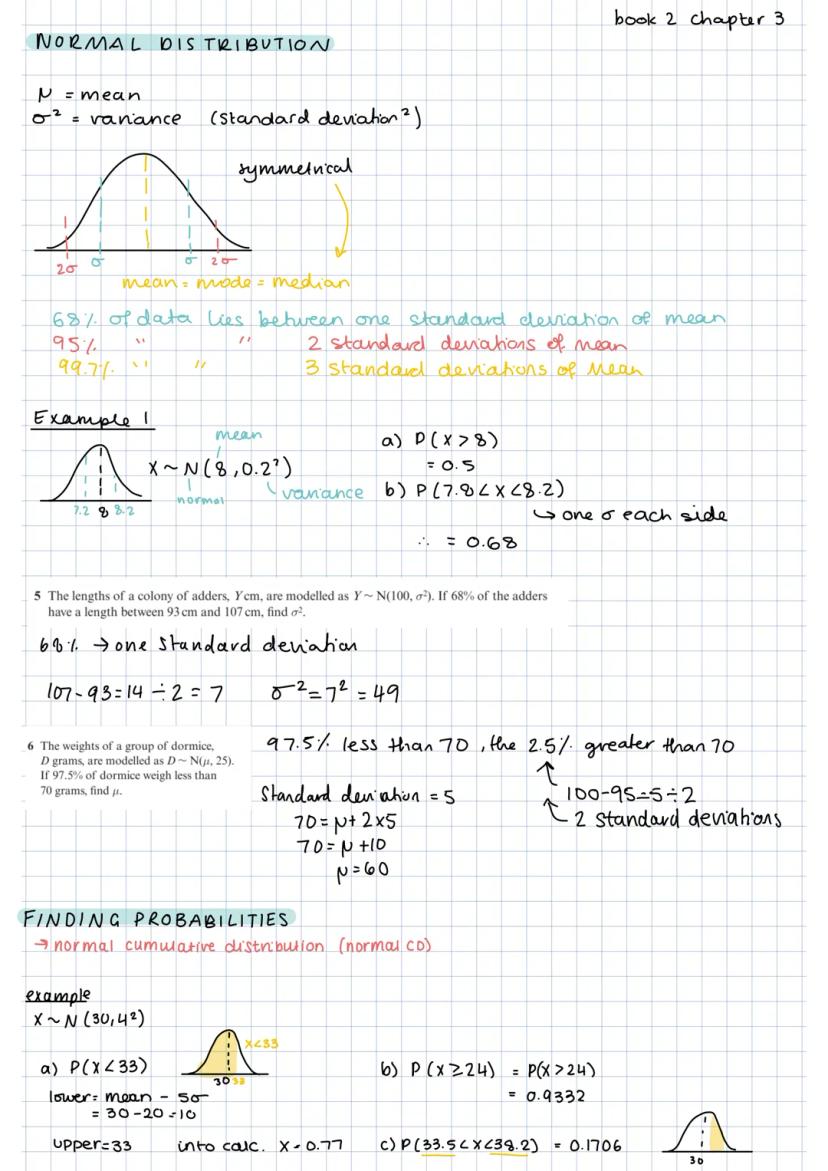 book 2 chapter 3
NORMAL DISTRIBUTION
μ = mean
σ² = variance (standard deviation²)
symmetrical
2σ σ σ 2σ
mean = mode = median
68% of data lies between one standard deviation of mean
95% " " 2 standard deviations of mean
99.7% " " 3 standard deviations of mean
Example 1
mean
X ~ N(8, 0.2²)
normal
variance
7.2 8 8.2
a) P(X > 8)
= 0.5
b) P(7.8 < X < 8.2)
↳ one σ each side
∴ = 0.68
5 The lengths of a colony of adders, Y cm, are modelled as Y ~ N(100, σ²). If 68% of the adders
have a length between 93 cm and 107 cm, find σ².
68% → one standard deviation
107-93=14 ÷ 2 = 7 σ² = 7² = 49
6 The weights of a group of dormice,
D grams, are modelled as D ~ N(μ, 25).
If 97.5% of dormice weigh less than
70 grams, find μ.
97.5% less than 70, the 2.5% greater than 70
100-95=5÷2
2 standard deviations
Standard deviation = 5
70 = μ + 2×5
70 = μ + 10
μ = 60
FINDING PROBABILITIES
→ normal cumulative distribution (normal CD)
example
X ~ N(30, 4²)
a) P(X < 33)
X<33
30 33
lower = mean - 5σ
= 30 - 20 = 10
upper = 33 into calc. X = 0.77
b) P(X ≥ 24) = P(X > 24)
= 0.9332
c) P(33.5 < X < 38.2) = 0.1706
30